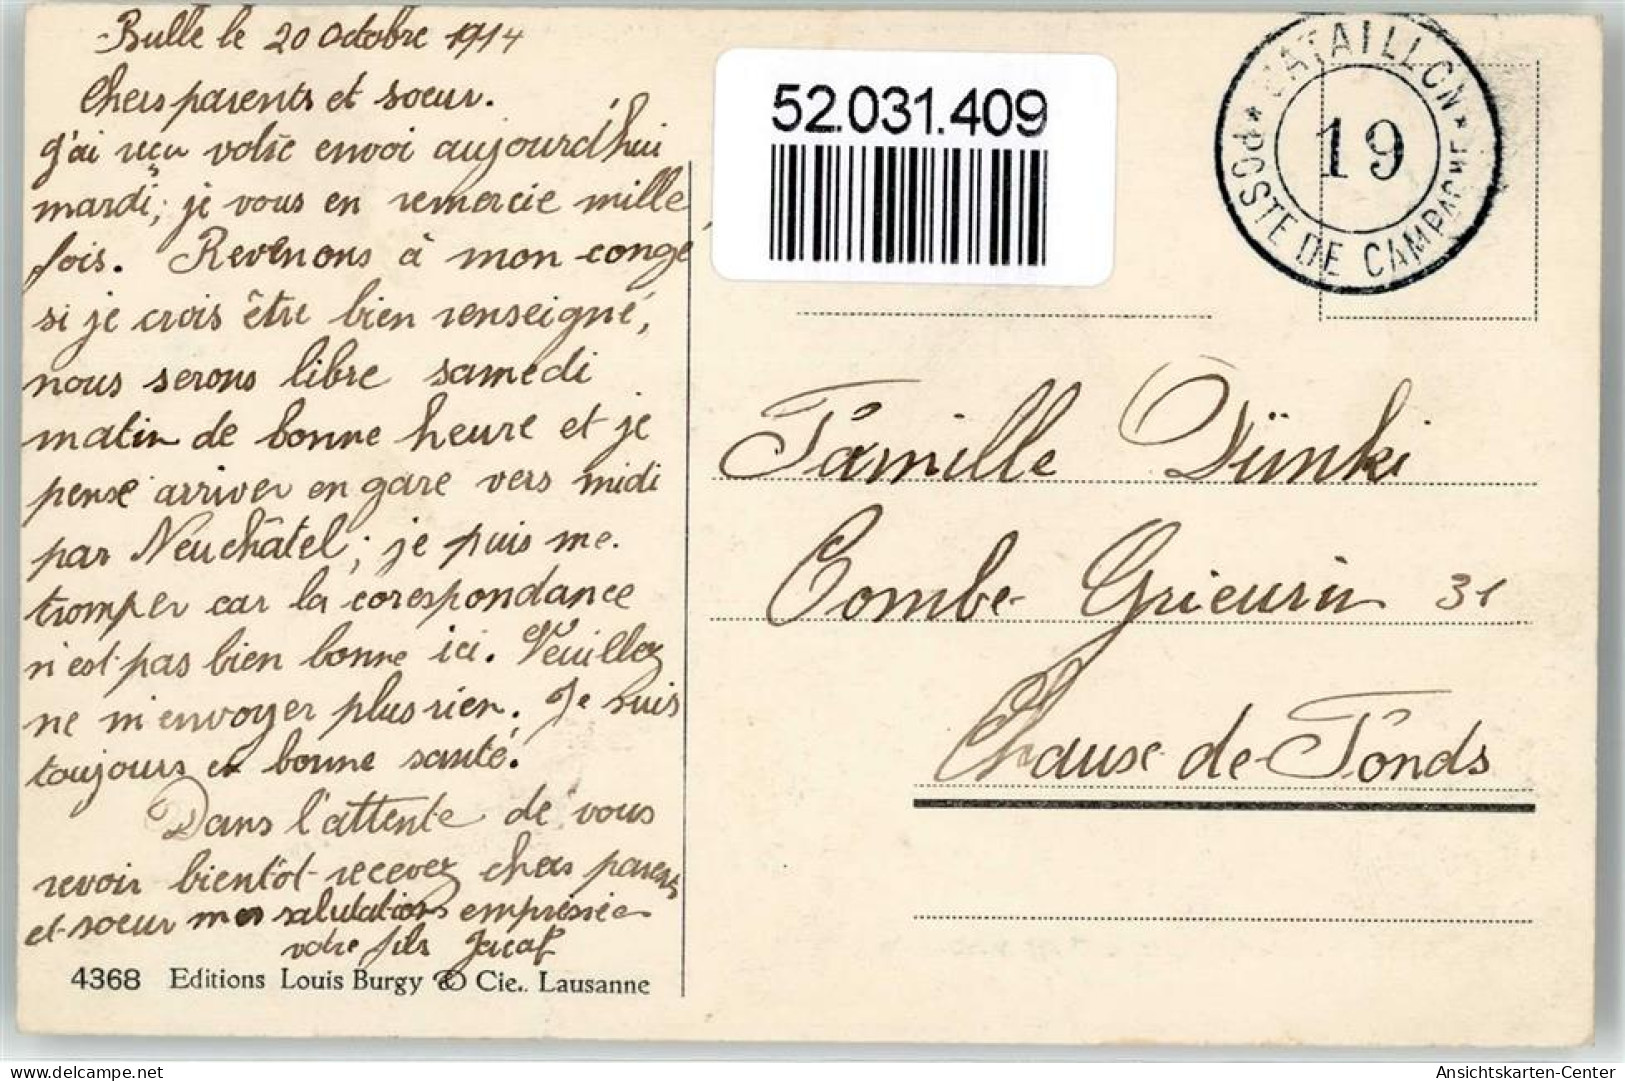 Bulle le 20 Octobre 1914
Chers parents et soeur.
J'ai reçu votre envoi aujourd'hui
mardi; je vous en remercie mille
fois. Revenons à mon congé,
si je crois être bien renseigné,
nous serons libre samedi
matin de bonne heure et je
pense arriver en gare vers midi
par Neuchâtel; je puis me
tromper car la corespondance
n'est pas bien bonne ici. Veuillez
ne m'envoyer plus rien. Je suis
toujours en bonne santé.
Dans l'attente de vous
revoir bientôt recevez chers parents
et soeur mes salutations empressées
votre fils
4368 Editions Louis Burgy & Cie., Lausanne
52.031.409
BATAILLON
19
* POSTE DE CAMPAGNE *
Famille Dünki
Combe Grieurin 31
Chaux-de-Fonds
Ansichtskarten-Center